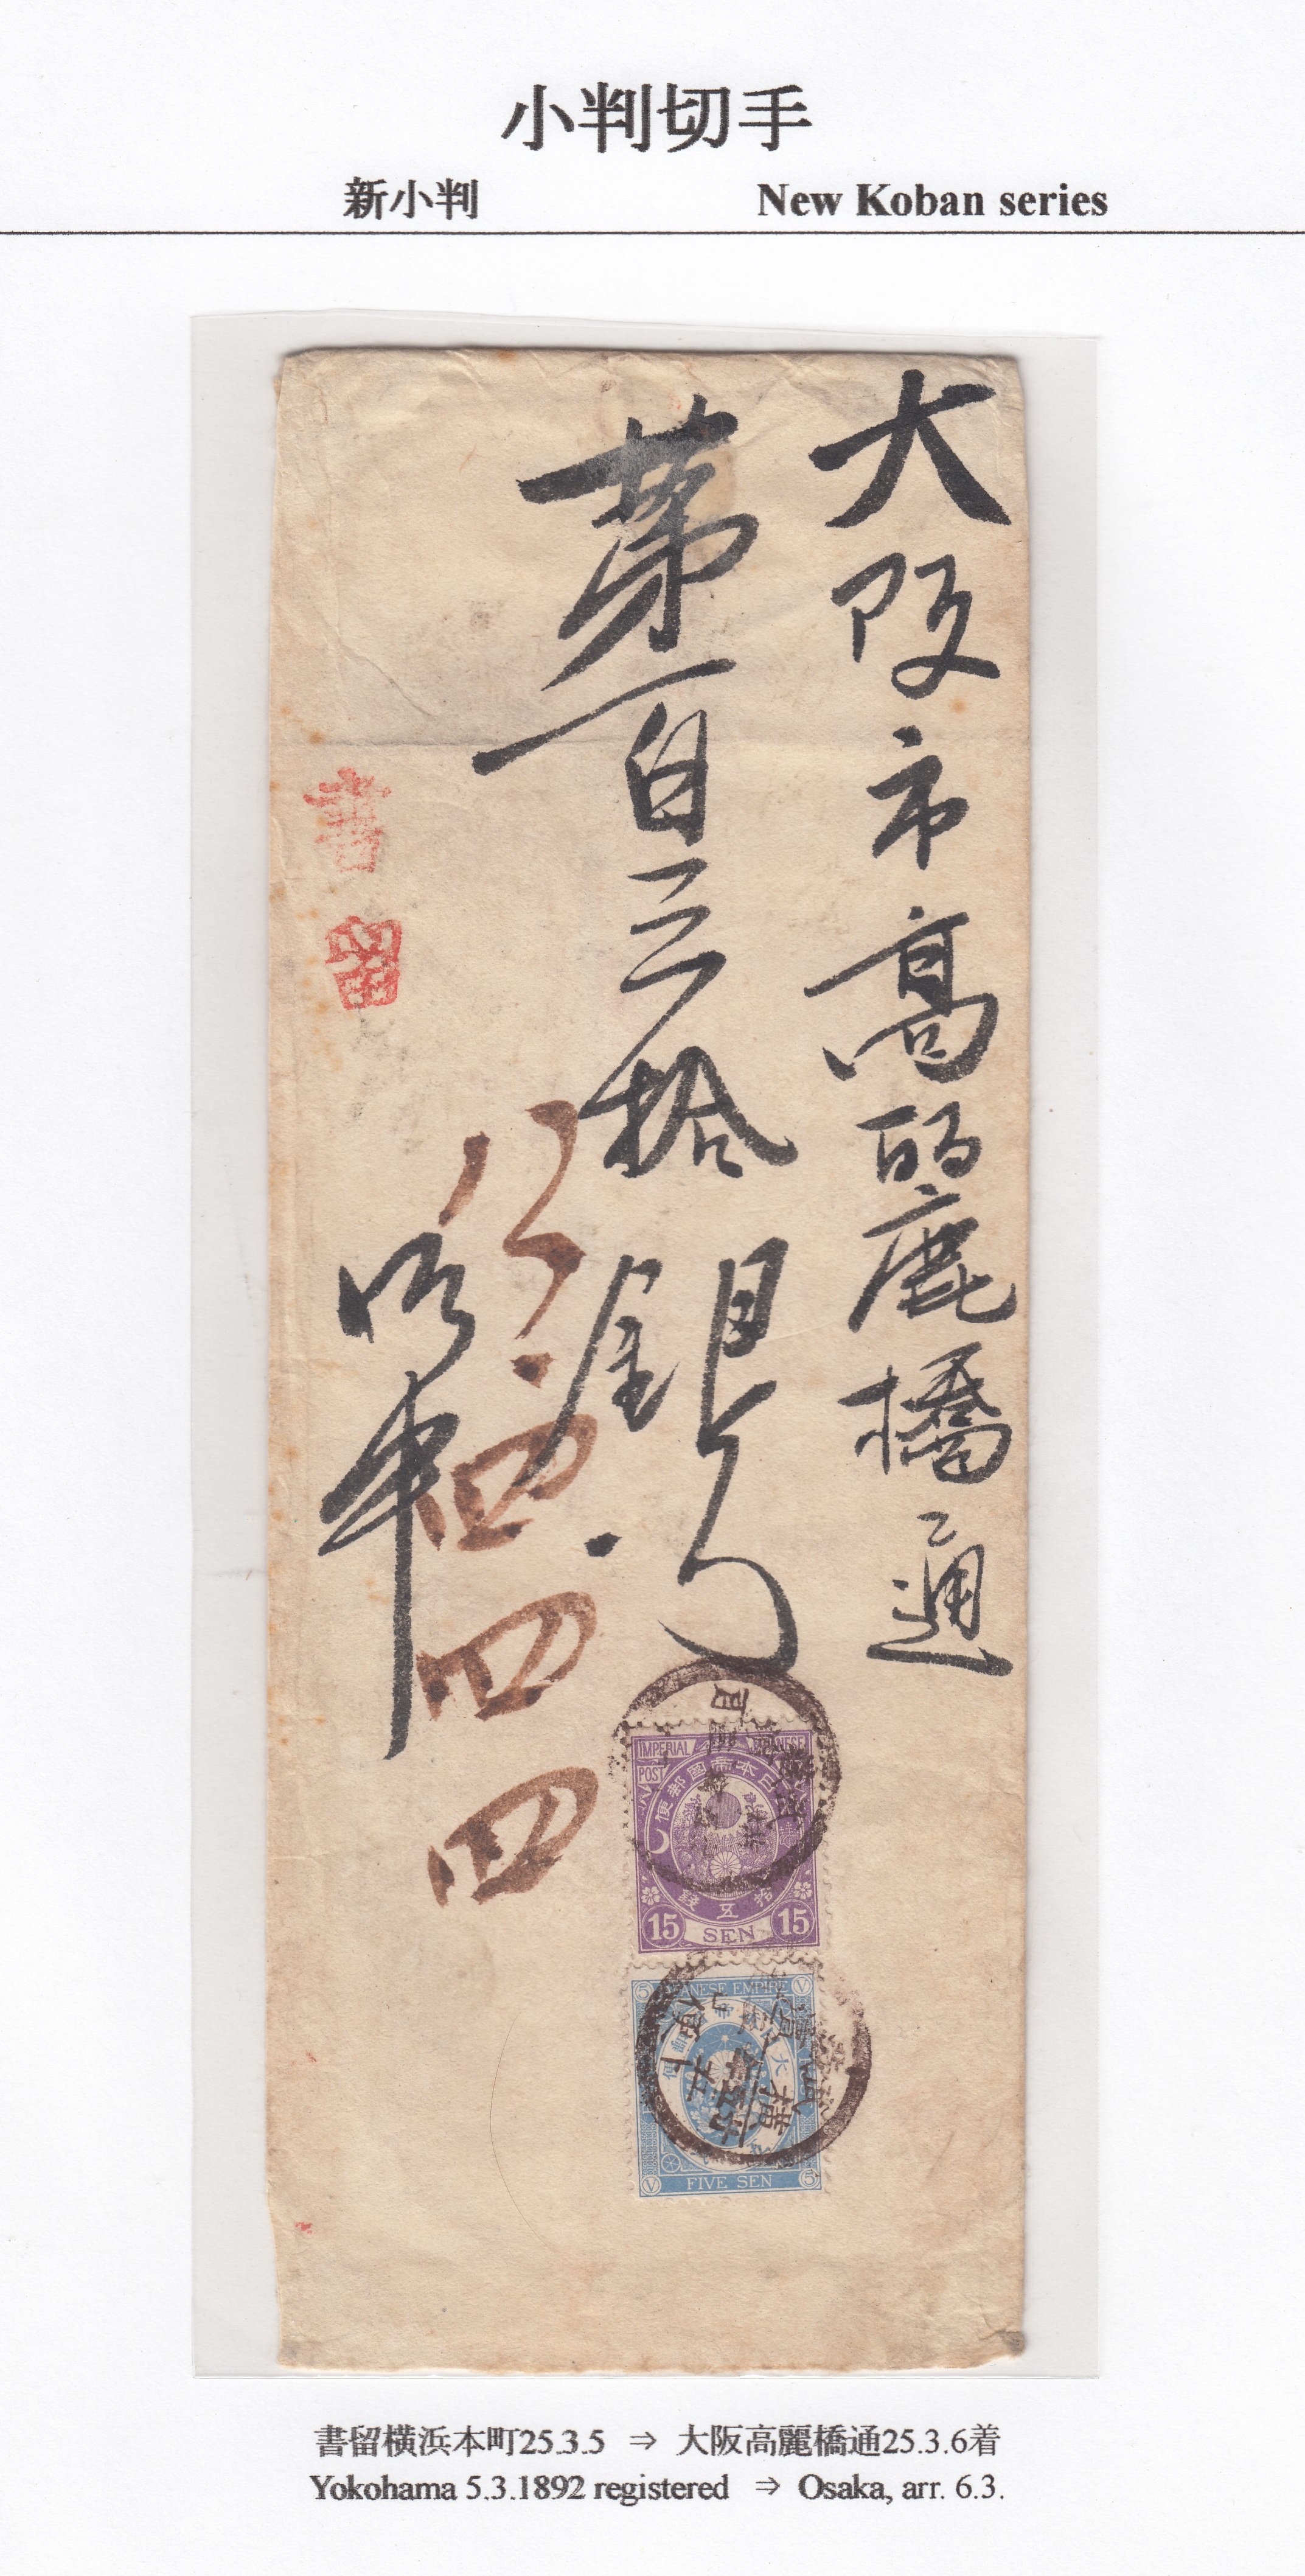 小判切手
新小判 New Koban series
大阪市高麗橋通
第百三拾
銀行
御中
書留
八
四
四
四
IMPERIAL JAPANESE
POST
大日本帝國郵便
拾五錢
15 SEN 15
5 JAPANESE EMPIRE V
V FIVE SEN 5
書留横浜本町25.3.5 ⇒ 大阪高麗橋通25.3.6着
Yokohama 5.3.1892 registered ⇒ Osaka, arr. 6.3.